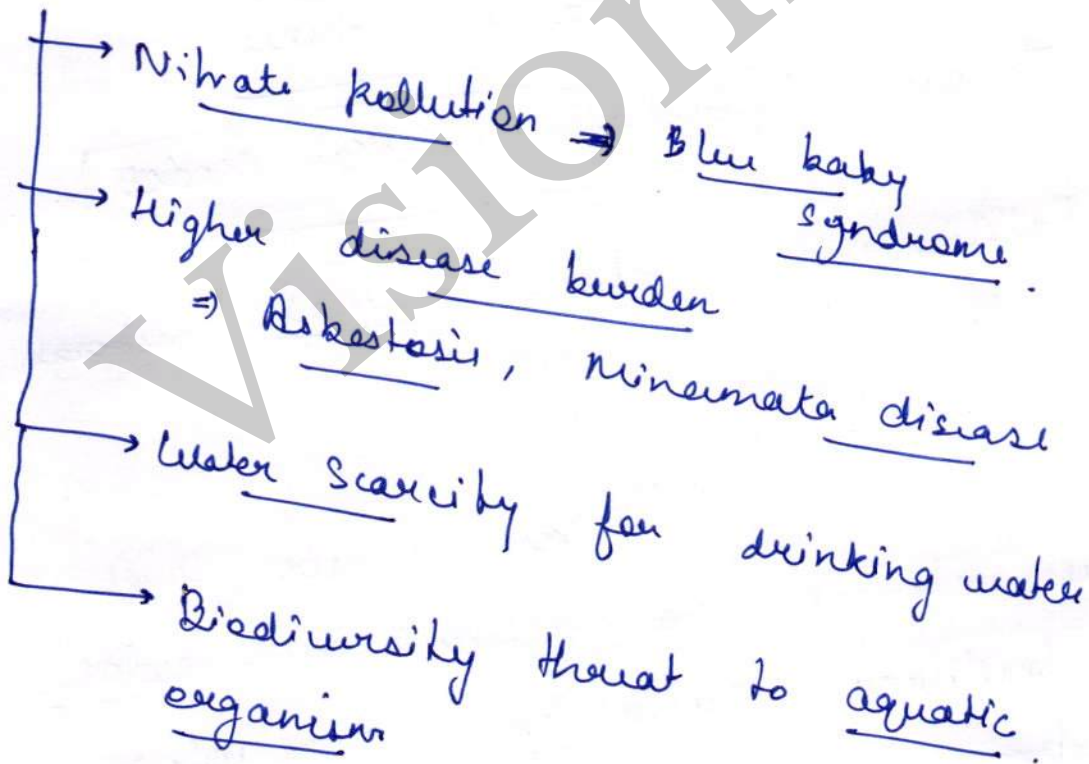 → Nitrate pollution ⇒ Blue baby
syndrome.
→ Higher disease burden
⇒ Asbestosis, Minamata disease
→ Water scarcity for drinking water
→ Biodiversity threat to aquatic
organism.
Vision